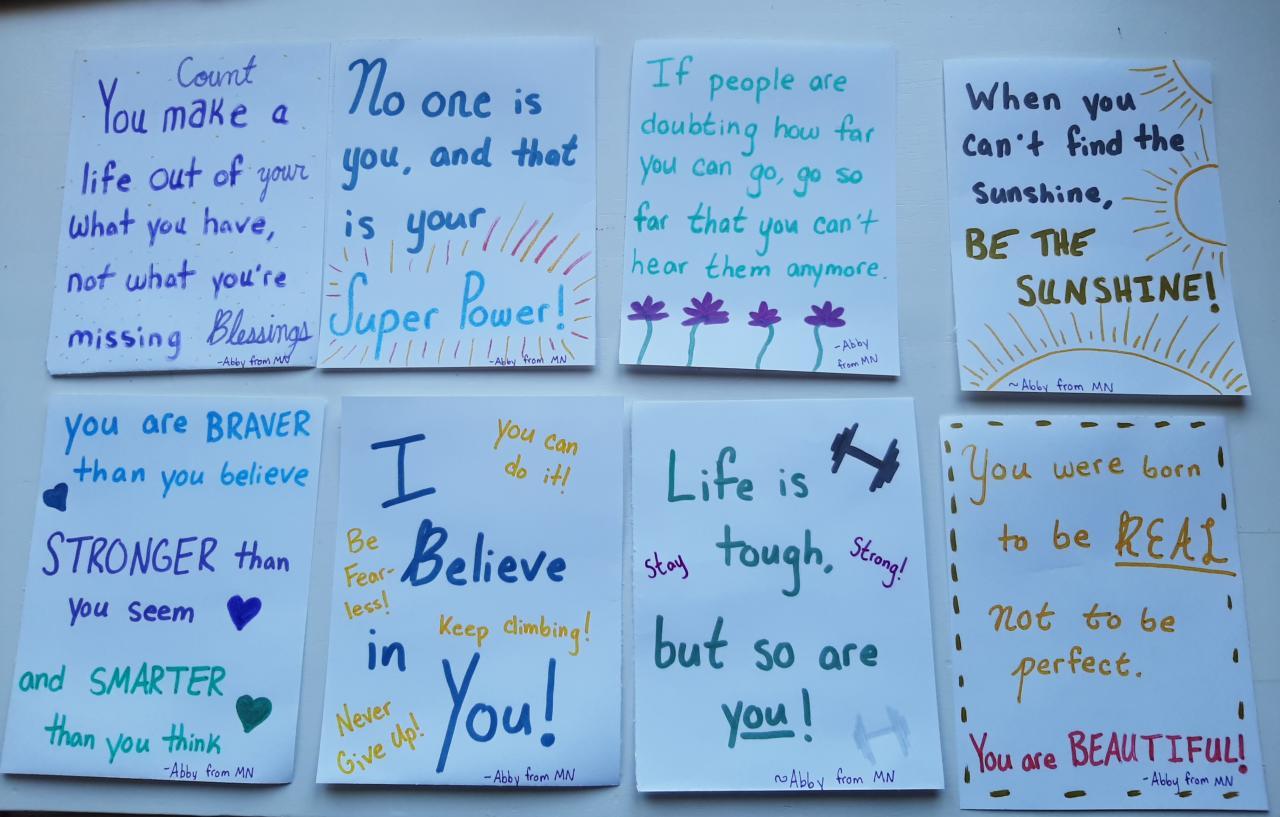 Count
You make a
life out of your
what you have,
not what you're
missing Blessings
-Abby from MN
No one is
you, and that
is your
Super Power!
-Abby from MN
If people are
doubting how far
you can go, go so
far that you can't
hear them anymore.
-Abby
from MN
When you
can't find the
sunshine,
BE THE
SUNSHINE!
~Abby from MN
you are BRAVER
than you believe
STRONGER than
you seem
and SMARTER
than you think
-Abby from MN
I
you can
do it!
Be
Fear-
less!
Believe
Keep climbing!
in
You!
Never
Give Up!
-Abby from MN
Life is
tough,
Stay
Strong!
but so are
you!
~Abby from MN
You were born
to be REAL
not to be
perfect.
You are BEAUTIFUL!
-Abby from MN